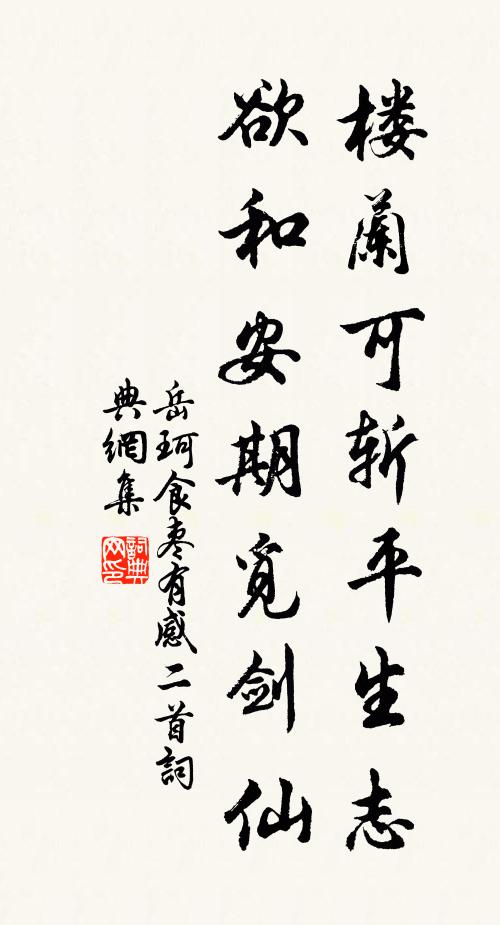 楼蘭可斩平生志
欲和安期覓剑仙
岳珂食枣有感二首詞
典網集
詞典
网印